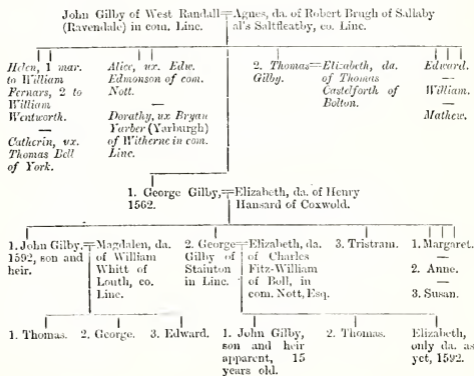 John Gilby of West Randall = Agnes, da. of Robert Brugh of Sallaby
(Ravendale) in com. Linc. al's Saltfleatby, co. Linc.
Helen, 1 mar.
to William
Fernars, 2 to
William
Wentworth.
—
Cathcrin, vx.
Thomas Bell
of York.
Alice, ux. Edw.
Edmonson of com.
Nott.
—
Dorathy, ux Bryan
Yarber (Yarburgh)
of Witherne in com.
Linc.
2. Thomas = Elizabeth, da.
Gilby. of Thomas
Castelforth of
Bolton.
Edward.
—
William.
—
Mathew.
1. George Gilby, = Elizabeth, da. of Henry
1562. Hansard of Coxwold.
1. John Gilby, = Magdalen, da.
1592, son and of William
heir. Whitt of
Louth, co.
Linc.
2. George = Elizabeth, da.
Gilby of of Charles
Stainton Fitz-William
in Linc. of Boll, in
com. Nott, Esq.
3. Tristram.
1. Margaret.
—
2. Anne.
—
3. Susan.
1. Thomas. 2. George. 3. Edward.
1. John Gilby,
son and heir
apparent, 15
years old.
2. Thomas.
Elizabeth,
only da. as
yet, 1592.